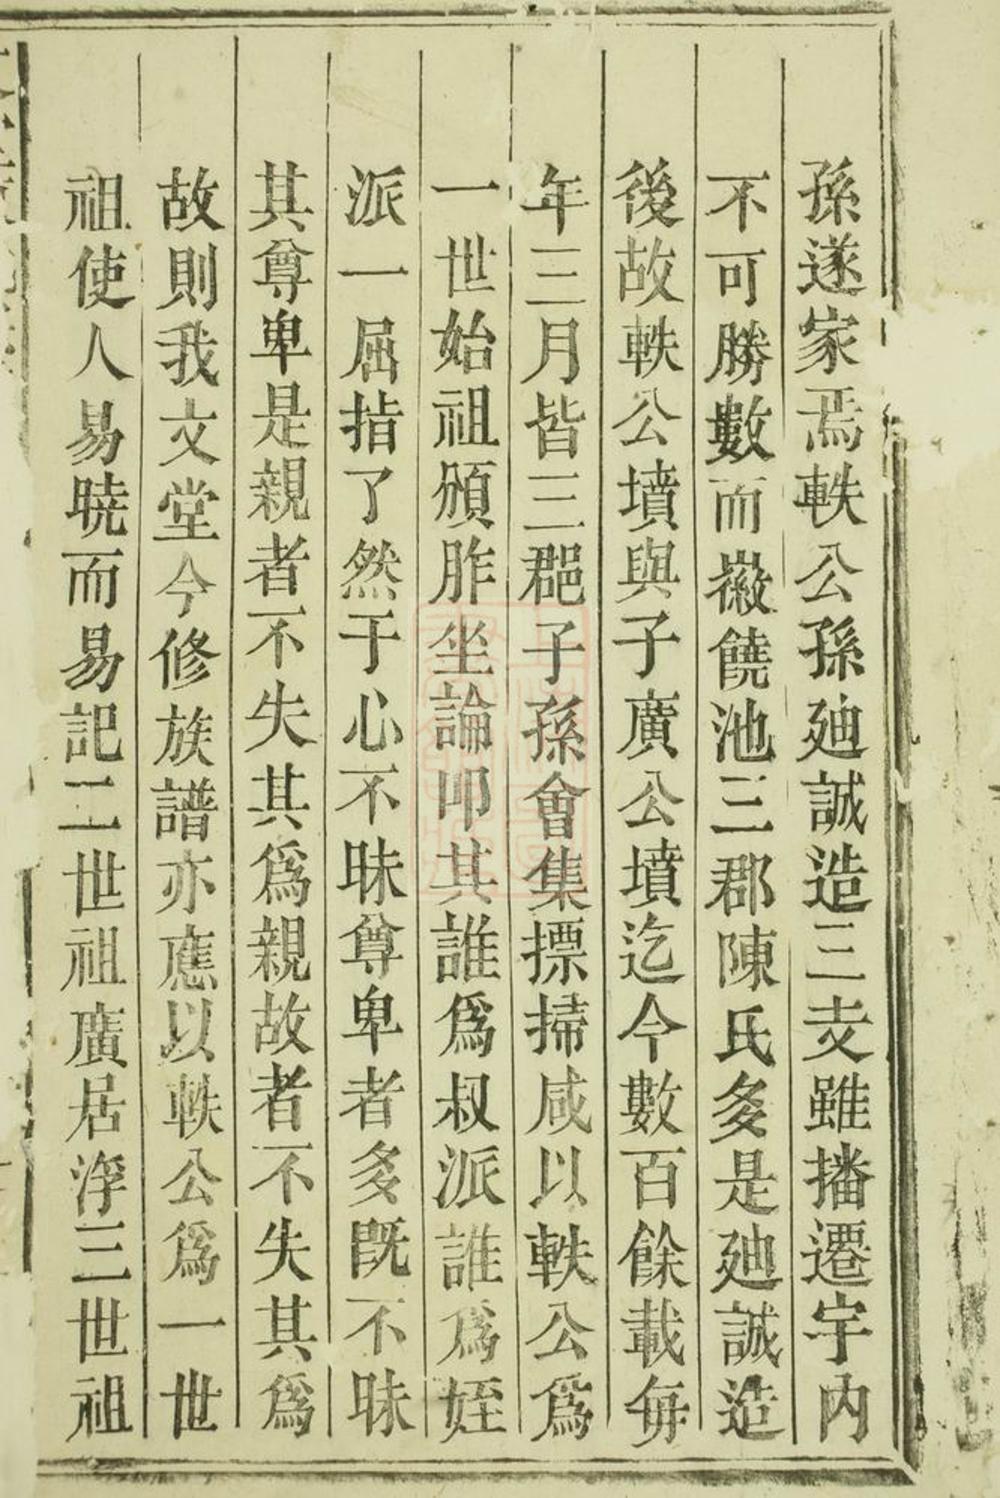 孫遂家焉軼公孫廸誠造三支雖播遷宇内
不可勝數而徽饒池三郡陳氏多是廸誠造
後故軼公墳與子廣公墳迄今數百餘載毎
年三月皆三郡子孫會集摽掃咸以軼公爲
一世始祖頒胙坐論叩其誰爲叔派誰爲姪
派一屈指了然于心不昧尊卑者多既不昧
其尊卑是親者不失其爲親故者不失其爲
故則我文堂今修族譜亦應以軼公爲一世
祖使人易曉而易記二世祖廣居浮三世祖